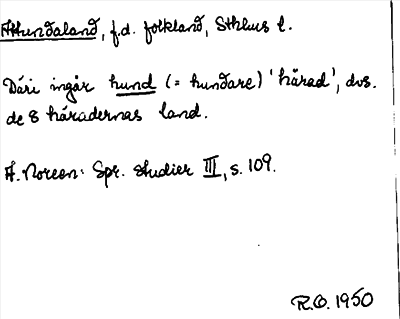 Attundaland, f.d. folkland, Sthlms l.
Däri ingår hund (= hundare) 'härad', dvs.
de 8 häradernas land.
A. Noreen: Spr. studier III, s. 109.
R.O. 1950